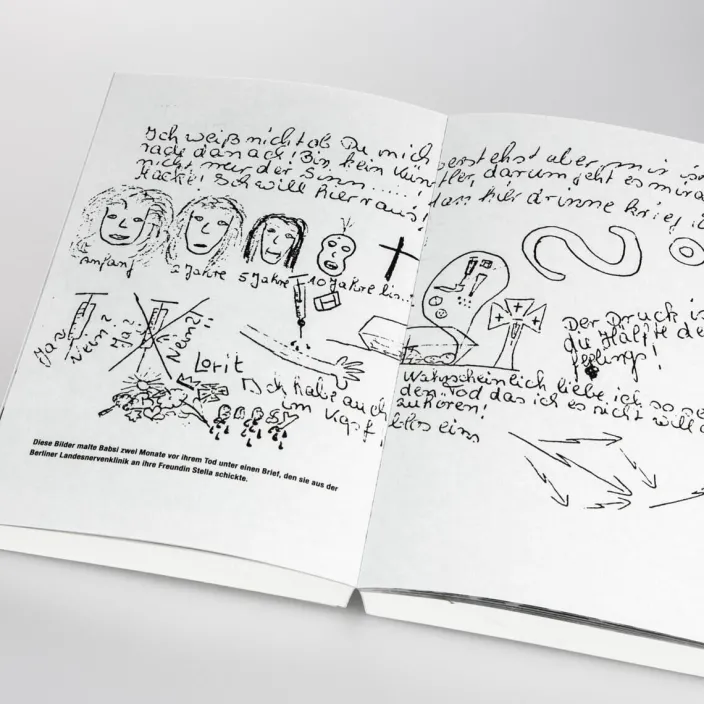 Ich weiß nicht ob Du mich verstehst aber mir is
rade danach! Bin kein Künstler, darum geht es mir
nicht nur der Sinn .....!
Hacke! Ich will hier raus! hier drinne krieg
Anfang 2 Jahre 5 Jahre 10 Jahre
Ja? Nein? Ja? Nein?!!
Der Druck is
du Hälfte de
feelings!
Lorit
Ich habe auch
im Kopf
Wahrscheinlich liebe ich so se
den Tod das ich es nicht will
aufhören!
eins
Diese Bilder malte Babsi zwei Monate vor ihrem Tod unter einen Brief, den sie aus der
Berliner Landesnervenklinik an ihre Freundin Stella schickte.